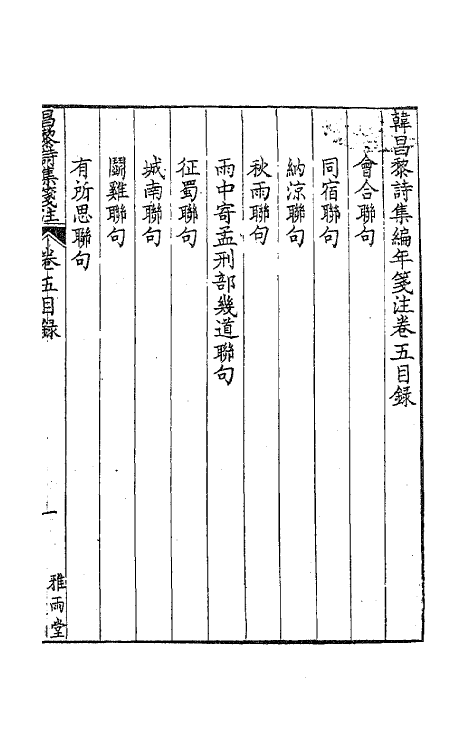 韓昌黎詩集編年箋注卷五目録
會合聯句
同宿聯句
納涼聯句
秋雨聯句
雨中寄孟刑部幾道聯句
征蜀聯句
城南聯句
鬬雞聯句
有所思聯句
昌黎詩集箋注 卷五目録 一 雅雨堂